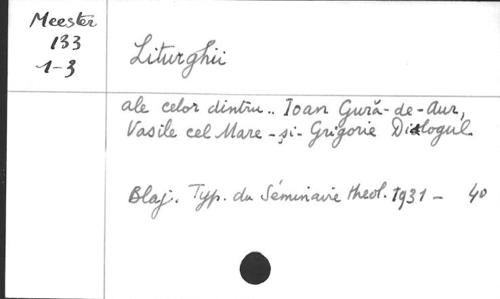 Meester
133
1-3
Liturghii
ale celor dintru.. Ioan Gură-de-Aur,
Vasile cel Mare - și - Grigorie Dialogul.
Blaj. Typ. du Séminaire theol. 1931 - 40